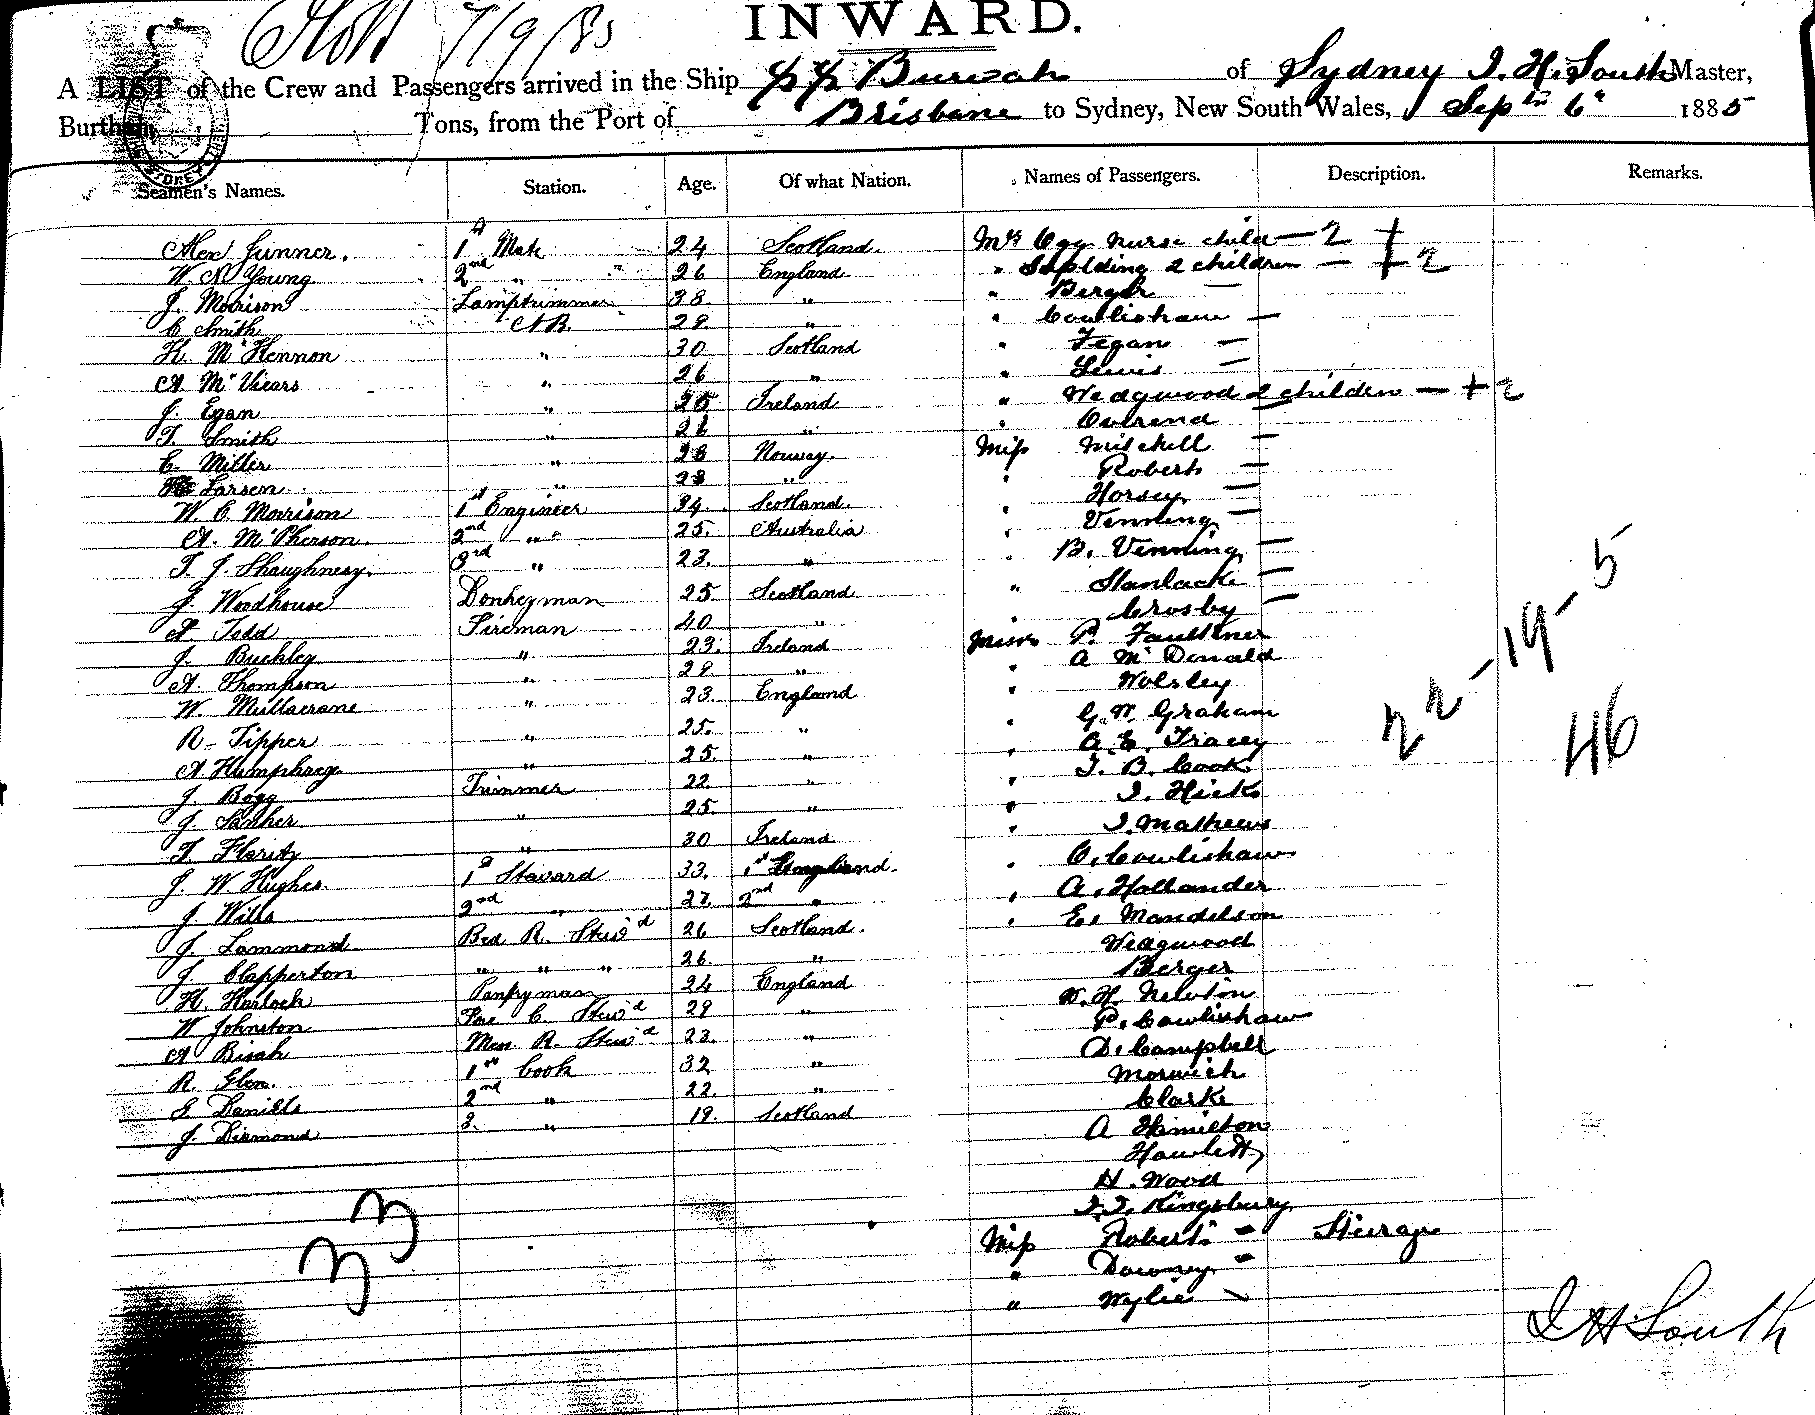 7/9/85
INWARD.
A LIST of the Crew and Passengers arrived in the Ship S/S Burwah of Sydney J. H. South Master,
Burthen, Tons, from the Port of Brisbane to Sydney, New South Wales, Sepr 6 1885
Seamen's Names. Station. Age. Of what Nation. Names of Passengers. Description. Remarks.
Alex Gunner. 1st Mate 24 Scotland. Mrs Ogg nurse child — 2 +
W. N. Young 2nd " 26 England " Spalding 2 children — + 2
J. Morrison Lamptrimmer 38 " " Berger —
C Smith A.B. 29 " " Cowlishaw —
H. McKennon " 30 Scotland " Fegan —
A. McVicars " 26 " " Lewis —
J. Egan " 25 Ireland " Wedgwood 2 children — + 2
T. Smith " 26 " " Overend
C. Miller " 28 Norway. Miss Mitchell —
Larsen " 28 " " Roberts —
W. C. Morrison 1st Engineer 34 Scotland. " Horsey —
A. McPherson. 2nd " 25. Australia " Venning —
T. J. Shaughnesy. 3rd " 23. " " B. Venning —
J. Woodhouse Donkeyman 25 Scotland " Stanlacke —
Todd Fireman 40 " " Crosby —
J. Buckley " 23. Ireland Messrs P. Faulkner
A. Thompson " 29 " " A McDonald
W. Mullacrane " 23. England " Wolsley
R. Tipper " 25. " " G. W. Graham
A Humphrey " 25. " " A. E. Tracey
J. Bogg Trimmer 22 " " T. B. Cook
J. " 25. " " J. Hicks
T. Flarity " 30 Ireland " J. Mathews
J. W Hughes. 1st Steward 33. 1st England. " C. Cowlishaw
J. Wills 2nd " 27. 2nd " " A. Hollander
J. Lammond Bed R. Stew'd 26 Scotland. " E. Mandelson
J. Clapperton " " " 26. " Wedgwood
H. Horlock Pantryman 24 England Berger
W Johnston Fore C. Stew'd 29 " W. H. Newton
A Bisah Mess R. Stew'd 23. " P. Cowlishaw
R. Glen. 1st Cook 32 " D. Campbell
Daniells 2nd " 22. " Morwich
J. Dermond 3. " 19. Scotland Clarke
A Hamilton
Howlett
H. Wood
J. J. Kingsbury
Miss Roberts — Steerage
" Downey —
" Wylie —
22 - 19 - 5
46
33
J H South